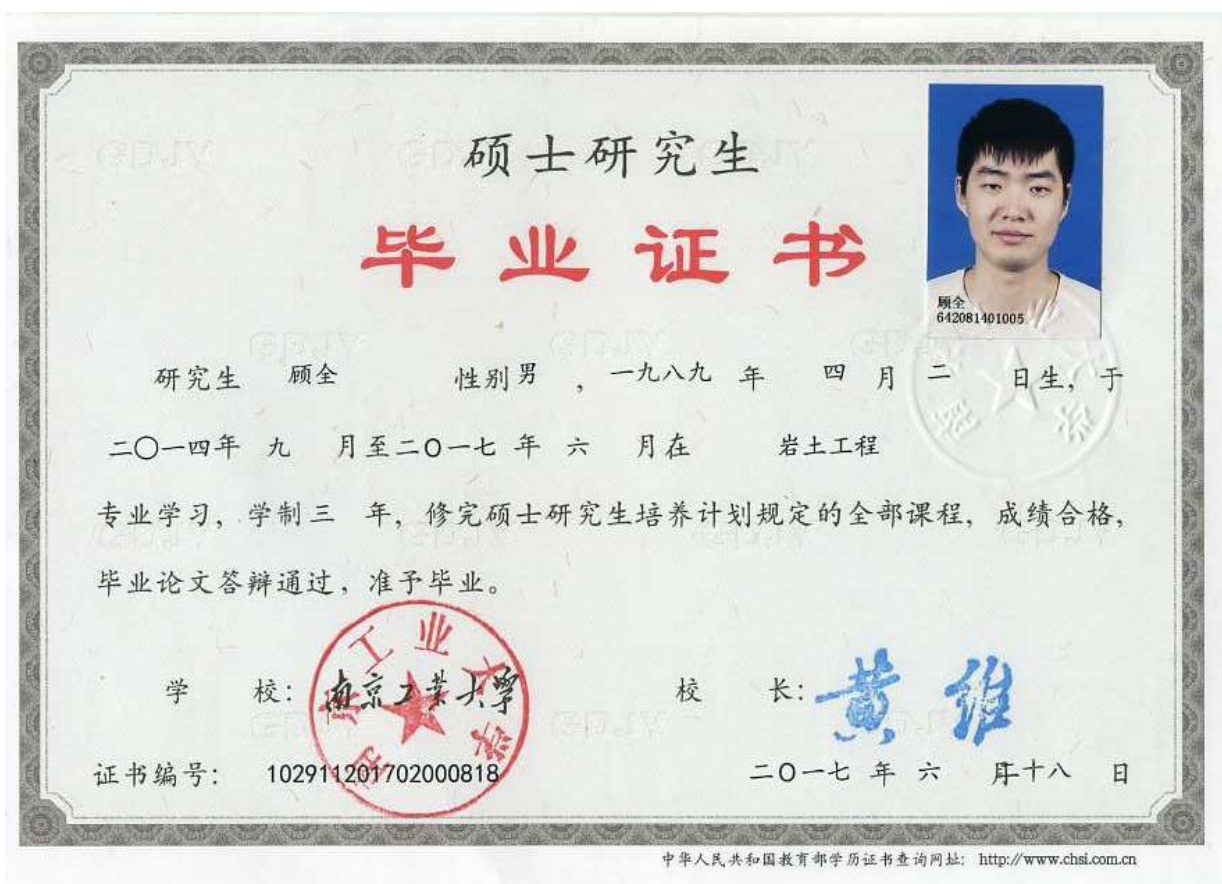 硕士研究生
毕业证书
顾全
642081401005
研究生 顾全 性别 男 , 一九八九 年 四 月 二 日生, 于
二〇一四年 九 月至二〇一七 年 六 月在 岩土工程
专业学习, 学制 三 年, 修完硕士研究生培养计划规定的全部课程, 成绩合格,
毕业论文答辩通过, 准予毕业。
学 校: 南京工业大学
校 长: 黄维
南京工业大学
证书编号: 102911201702000818
二〇一七 年 六 月二十八 日
中华人民共和国教育部学历证书查询网址: http://www.chsi.com.cn